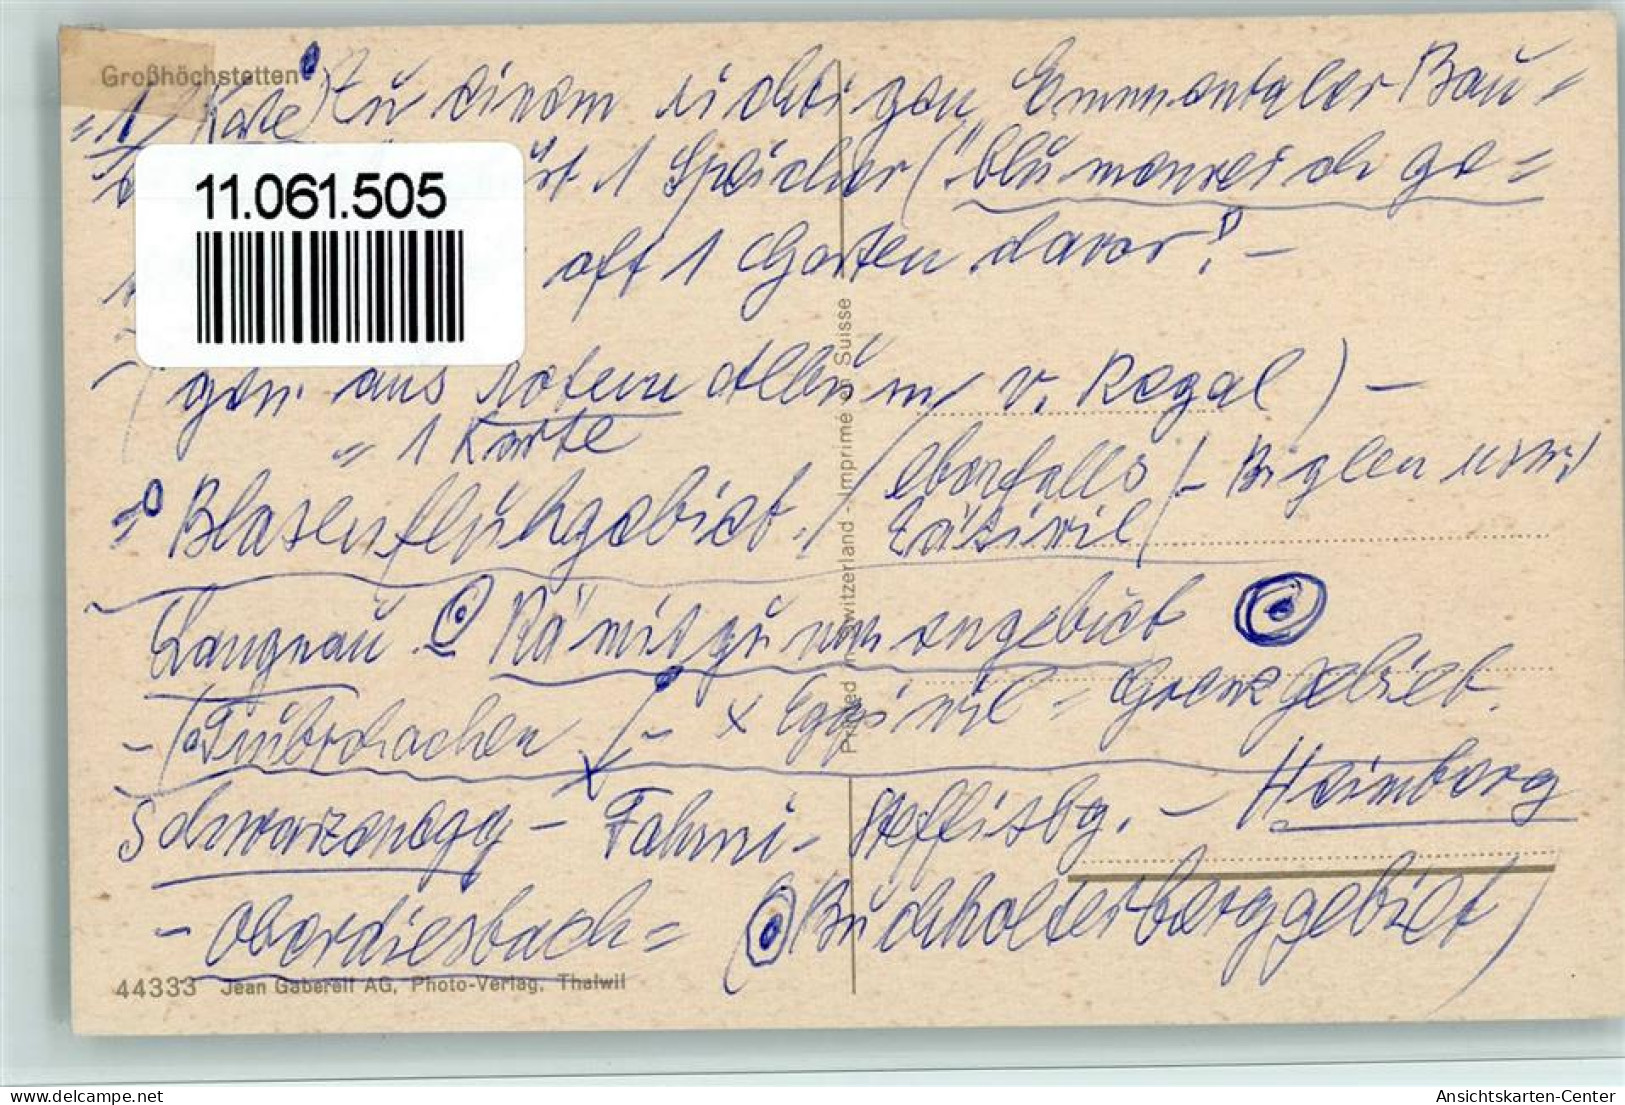 Großhöchstetten
"1 Karte) Zu einem richtigen Emmentaler Bau=
ist 1 Speicher ("blumenreich ge=
oft 1 Garten davor! –
11.061.505
gen. aus rotem Album v. Regal) –
" 1 Karte
Blasenfluhgebiet. / ebenfalls / – Biglen usw.
Zäziwil /
Langnau Rämisgummengebiet
– (Trubschachen / – x Eggiwil = Grenzgebiet.
Schwarzenegg – Fahrni – Steffisbg. – Heimberg
– Oberdiesbach = (Buchholterberggebiet)
44333 Jean Gaberell AG, Photo-Verlag, Thalwil
Printed in Switzerland - Imprimé en Suisse
Ansichtskarten-Center